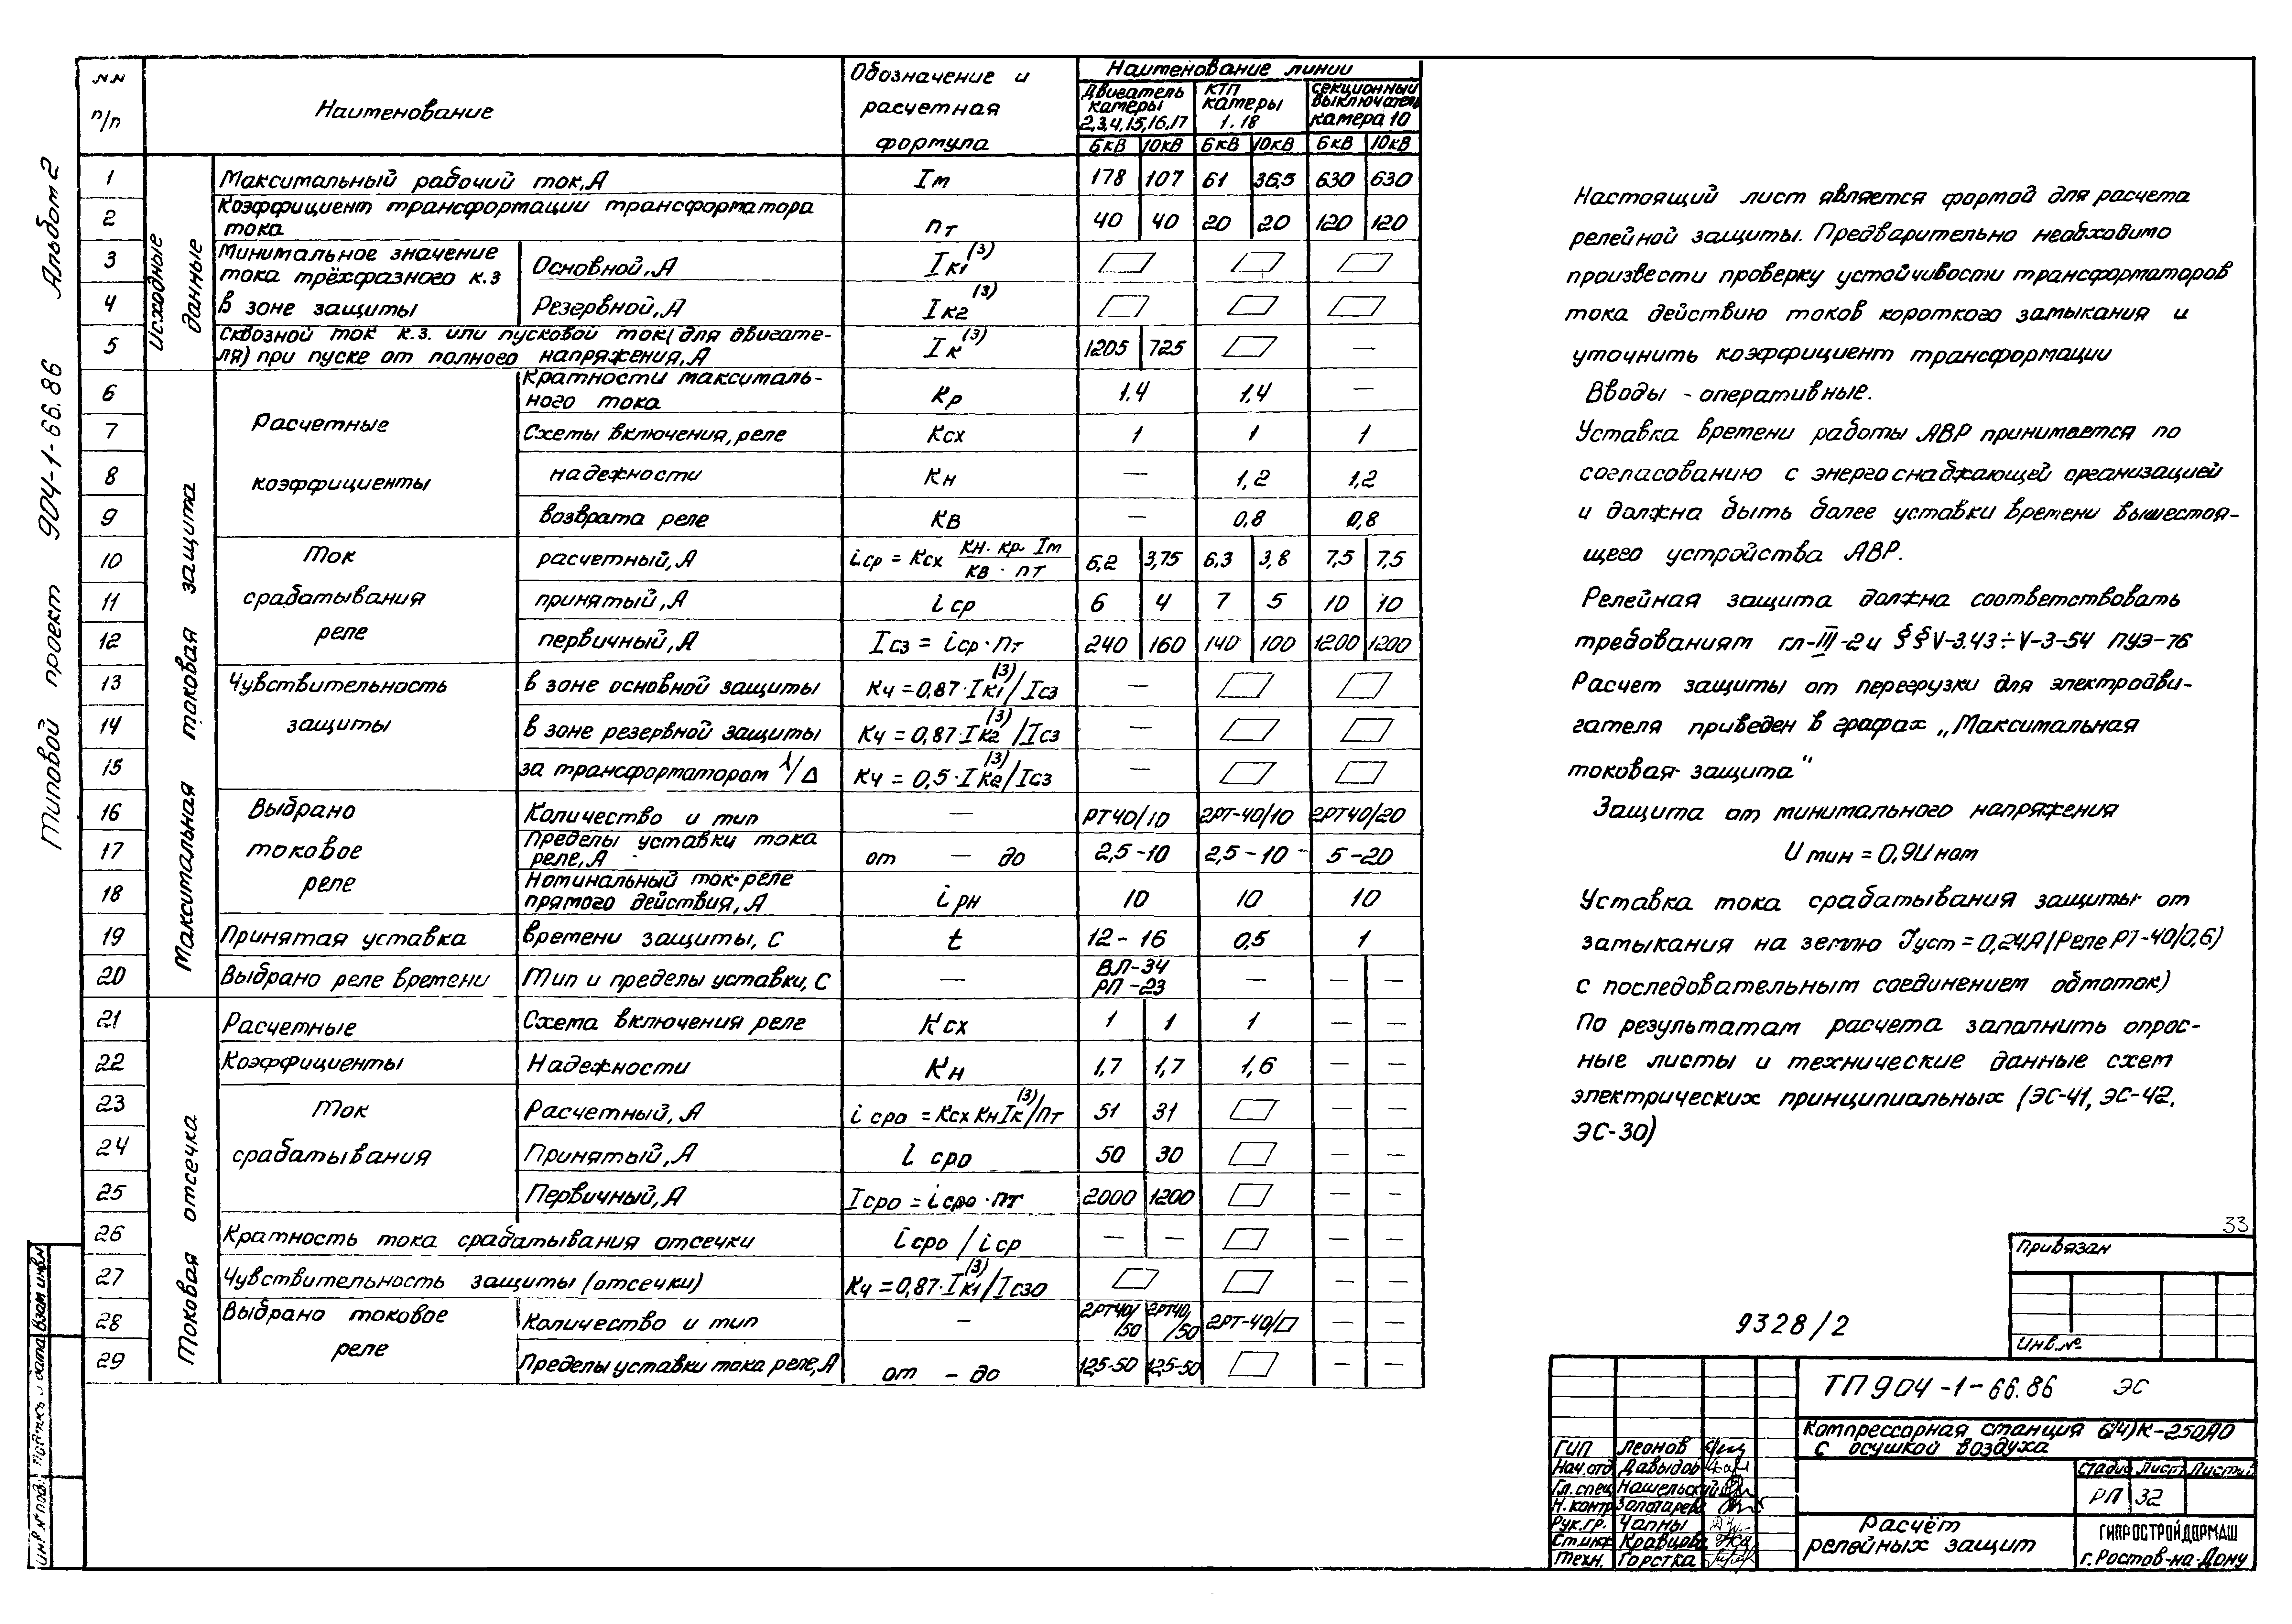 Типовой проект 904-1-66.86 Альбом 2
NN п/п
Наименование
Обозначение и расчетная формула
Наименование линии
Двигатель камеры 2,3,4,15,16,17
КТП камеры 1.18
Секционный выключатель камера 10
6кВ 10кВ 6кВ 10кВ 6кВ 10кВ
Исходные данные
1 Максимальный рабочий ток, А Iм 178 107 61 36,5 630 630
2 Коэффициент трансформации трансформатора тока nт 40 40 20 20 120 120
Минимальное значение тока трёхфазного к.з в зоне защиты
3 Основной, А Iк1(3)
4 Резервной, А Iк2(3)
5 Сквозной ток к.з. или пусковой ток (для двигателя) при пуске от полного напряжения, А Iк(3) 1205 725 —
Максимальная токовая защита
Расчетные коэффициенты
6 Кратности максимального тока Кр 1.4 1.4 —
7 Схемы включения, реле Ксх 1 1 1
8 надежности Кн — 1,2 1,2
9 возврата реле Кв — 0,8 0,8
Ток срабатывания реле
10 расчетный, А iср = Ксх Кн·Кр·Iм / Кв·nт 6,2 3,75 6.3 3,8 7,5 7,5
11 принятый, А iср 6 4 7 5 10 10
12 первичный, А Iсз = iср·nт 240 160 140 100 1200 1200
Чувствительность защиты
13 в зоне основной защиты Кч = 0,87·Iк1(3)/Iсз —
14 в зоне резервной защиты Кч = 0,87·Iк2(3)/Iсз —
15 за трансформатором λ/Δ Кч = 0,5·Iк2(3)/Iсз —
Выбрано токовое реле
16 Количество и тип — РТ40/10 2РТ-40/10 2РТ40/20
17 Пределы уставки тока реле, А от — до 2,5-10 2,5-10 5-20
18 Номинальный ток реле прямого действия, А iрн 10 10 10
19 Принятая уставка времени защиты, С t 12-16 0,5 1
20 Выбрано реле времени Тип и пределы уставки, С — ВЛ-34 РП-23 — — —
Токовая отсечка
Расчетные Коэффициенты
21 Схема включения реле Ксх 1 1 1 — —
22 Надежности Кн 1,7 1,7 1,6 — —
Ток срабатывания
23 Расчетный, А iсро = Ксх Кн Iк(3)/nт 51 31 — —
24 Принятый, А iсро 50 30 — —
25 Первичный, А Iсро = iсро·nт 2000 1200 — —
26 Кратность тока срабатывания отсечки iсро / iср — — — —
27 Чувствительность защиты (отсечки) Кч = 0,87·Iк1(3)/Iсзо — —
Выбрано токовое реле
28 Количество и тип — 2РТ40/50 2РТ40/50 2РТ-40/ — —
29 Пределы уставки тока реле, А от — до 12,5-50 12,5-50 — —
Настоящий лист является формой для расчета
релейной защиты. Предварительно необходимо
произвести проверку устойчивости трансформаторов
тока действию токов короткого замыкания и
уточнить коэффициент трансформации
Вводы - оперативные.
Уставка времени работы АВР принимается по
согласованию с энергоснабжающей организацией
и должна быть более уставки времени вышестоя-
щего устройства АВР.
Релейная защита должна соответствовать
требованиям гл-III-2 и §§V-3.43÷V-3-54 ПУЭ-76
Расчет защиты от перегрузки для электродви-
гателя приведен в графах „Максимальная
токовая защита"
Защита от минимального напряжения
U мин = 0,9U ном
Уставка тока срабатывания защиты от
замыкания на землю Jуст = 0,24А (Реле РТ-40/0,6)
с последовательным соединением обмоток)
По результатам расчета заполнить опрос-
ные листы и технические данные схем
электрических принципиальных (ЭС-41, ЭС-42,
ЭС-30)
33
Привязан
Инв.№
9328/2
ТП 904-1-66.86 ЭС
Компрессорная станция 6(4)К-250АО
с осушкой воздуха
ГИП Леонов
Нач.отд Давыдов
Гл.спец Нашельский
Н.контр Золотарева
Рук.гр. Чапны
Ст.инж Кравцова
Техн. Горстка
Стадия Лист Листов
РП 32
Расчёт
релейных защит
ГИПРОСТРОЙДОРМАШ
г.Ростов-на-Дону
Инв № подл. Подпись и дата Взам инв№